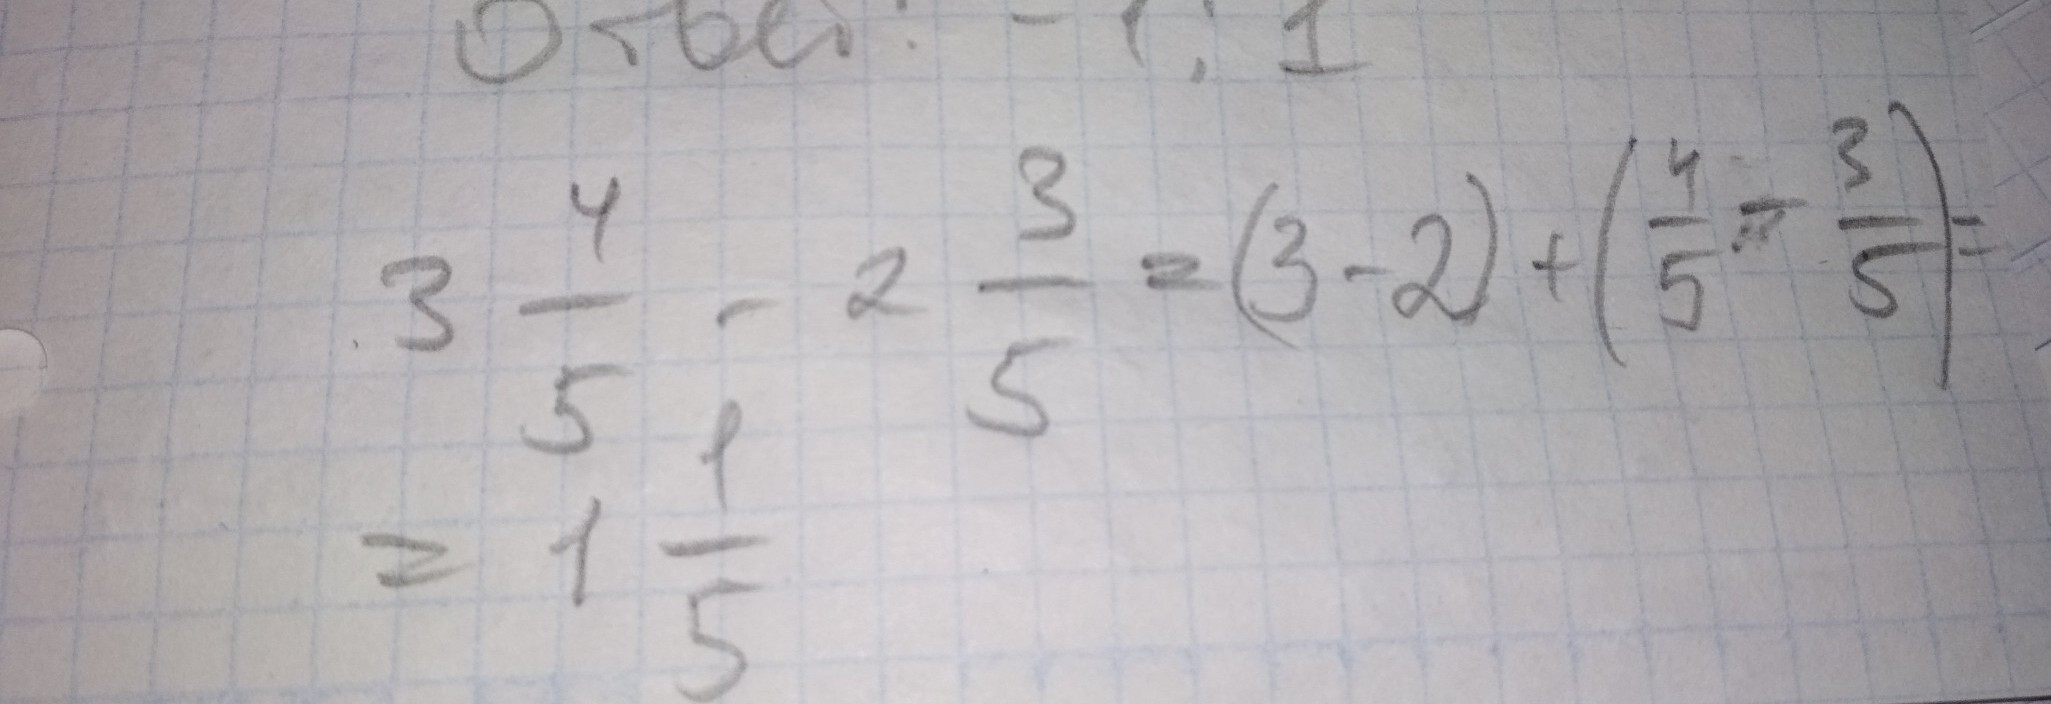 Ответ: -1; 1
3 4/5 - 2 3/5 = (3 - 2) + (4/5 - 3/5) =
= 1 1/5